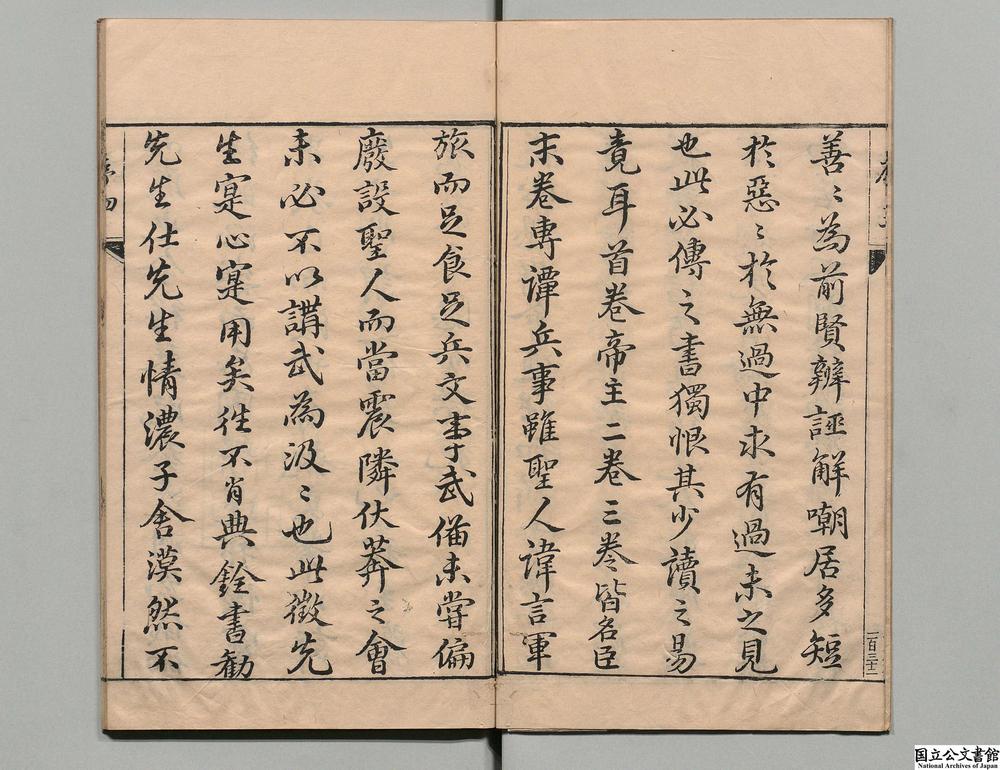 善〻為前賢辨誣解嘲居多短
於惡〻於無過中求有過未之見
也此必傳之書獨恨其少讀之易
竟耳首卷帝主二卷三卷皆名臣
末卷專譚兵事雖聖人諱言軍
一百三十二
旅而足食足兵文事武備未嘗偏
廢設聖人而當震隣伏莽之會
未必不以講武為汲〻也此徵先
生寔心寔用矣往不肖典銓書勸
先生仕先生情濃子舍漠然不
序四
国立公文書館
National Archives of Japan